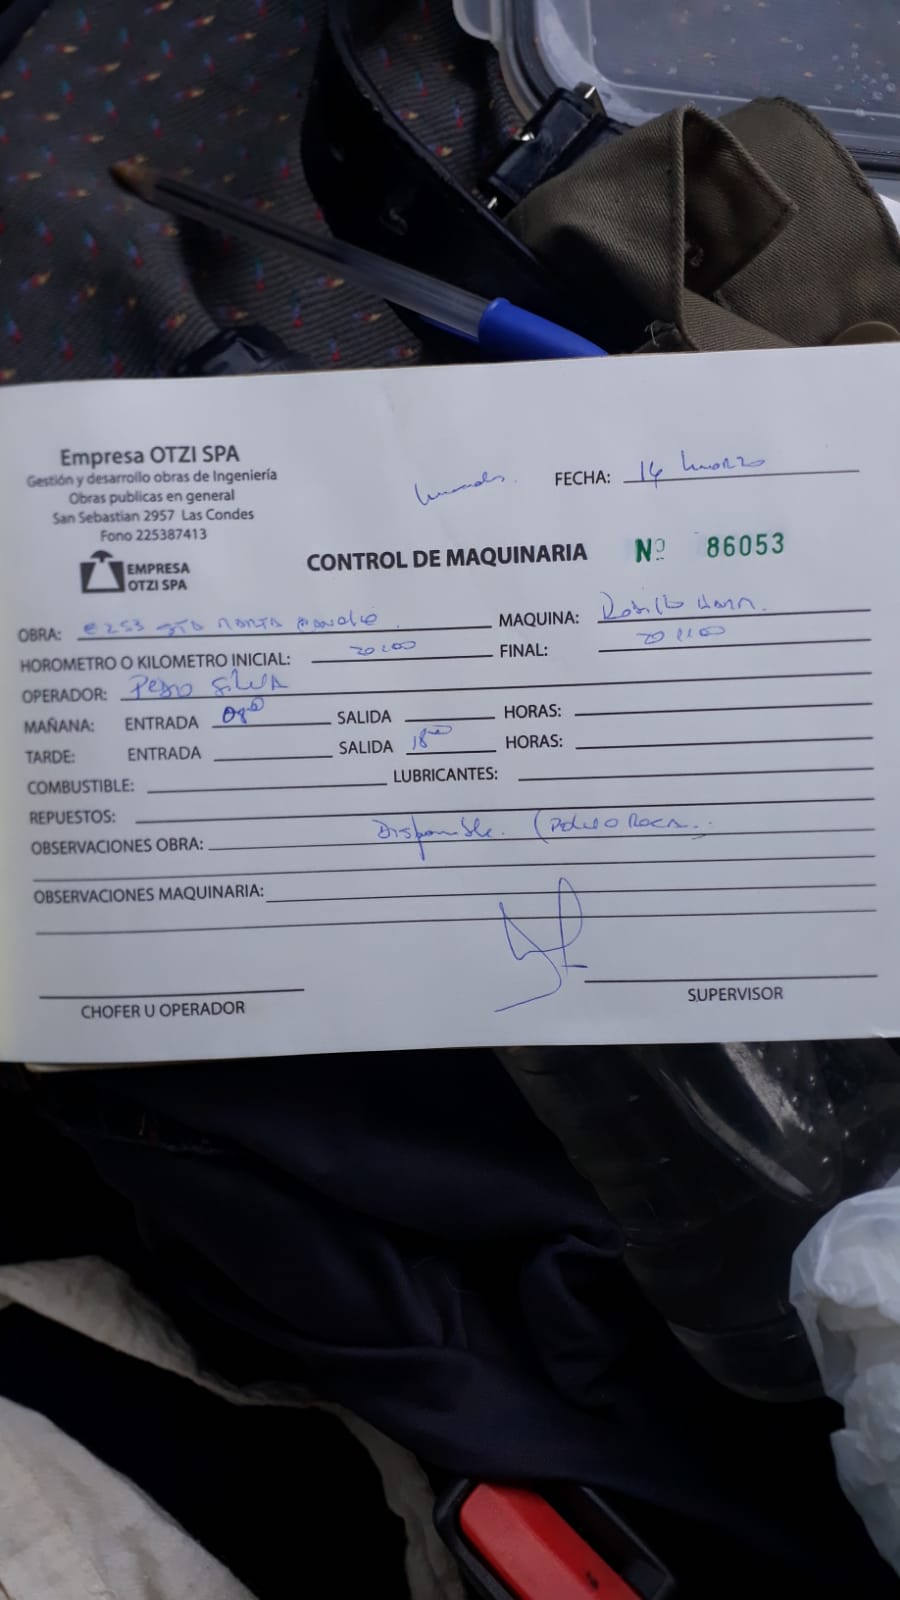 Empresa OTZI SPA
Gestión y desarrollo obras de Ingeniería
Obras publicas en general
San Sebastian 2957 Las Condes
Fono 225387413
EMPRESA
OTZI SPA
FECHA: 14 marzo
CONTROL DE MAQUINARIA Nº 86053
OBRA: Sta Marta
MAQUINA: Rodillo
HOROMETRO O KILOMETRO INICIAL:
FINAL:
OPERADOR: Pedro Silva
MAÑANA: ENTRADA 08⁰⁰ SALIDA HORAS:
TARDE: ENTRADA SALIDA 18⁰⁰ HORAS:
COMBUSTIBLE: LUBRICANTES:
REPUESTOS:
OBSERVACIONES OBRA: Disponible. (Polvo Roca.
OBSERVACIONES MAQUINARIA:
CHOFER U OPERADOR
SUPERVISOR